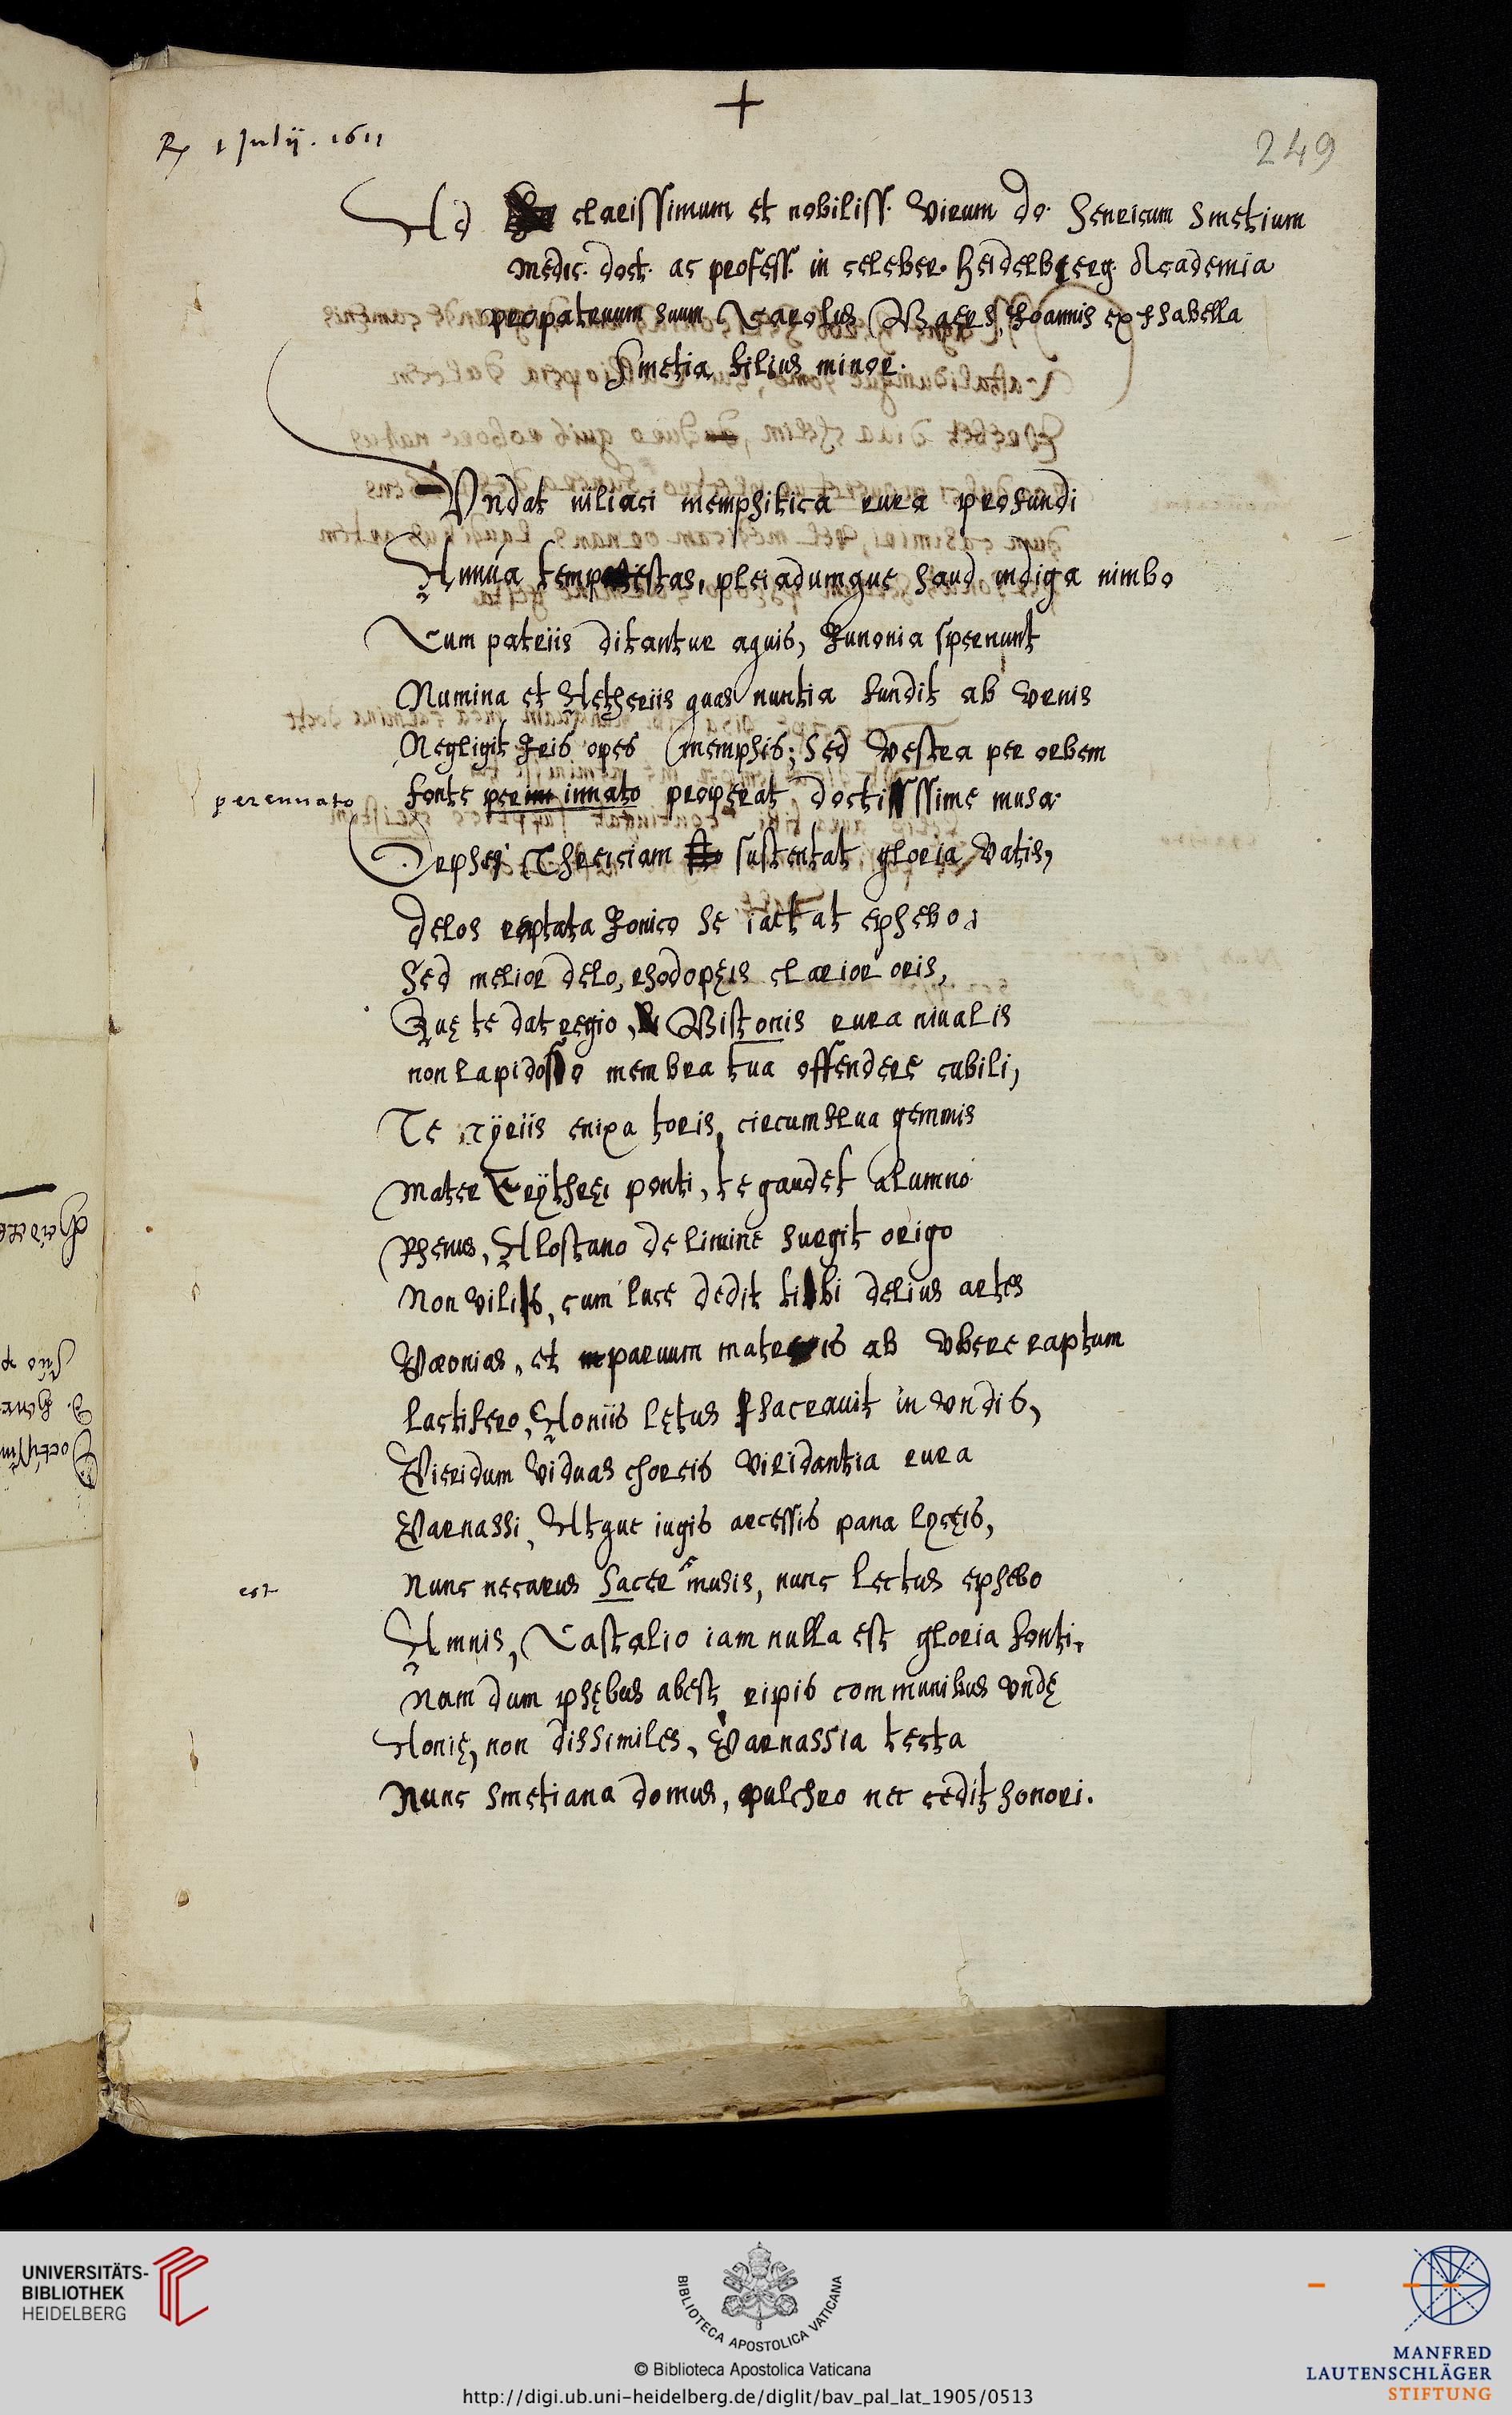 +
R 1 Julij. 1611
249
Ad clarissimum et nobiliss. Virum do. Henricum Smetium
medic. doct. ac profess. in celeber. heidelberg. Academia
propatruum suum Carolus Baers, Ihoannis ex Isabella
Smetia filius minor.
Undat niliaci memphitica rura profundi
Annua tempestas, pleiadumque haud indiga nimbo
Cum patriis ditantur aquis, Iunonia spernunt
Numina et Aetheriis quas nuntia fundit ab Vrnis
Negligit Iris opes memphis; Sed Vestra per orbem
perennato
fonte per innato properat doctissime musa.
Orphei Threiciam sustentat gloria Vatis,
delos reptata Ionico se iactat ephebo;
Sed melior delo, rhodopęis clarior oris,
Quę te dat regio, Bistonis rura niualis
non lapidoso membra tua offendere cubili,
Te Tÿriis enixa toris, circumflua gemmis
Mater Erÿthręi ponti, te gaudet alumno
Rhenus, Alostano de limine surgit origo
Non vilis, cum luce dedit tibi delius artes
Pæonias, et paruum matris ab Vbere raptum
lactifero, Aoniis lętus sacrauit in Vndis,
Pieridum Viduas choreis Viridantia rura
Parnassi, Atque iugis arcessis pana lycęis,
est
Nunc necarus Sacer musis, nunc lectus ephebo
Amnis, Castalio iam nulla est gloria fonti,
Nam dum phębus abest ripis communibus Vndę
Aonię, non dissimiles, Parnassia tecta
Nunc Smetiana domus, pulchro nec cedit honori.
UNIVERSITÄTS-
BIBLIOTHEK
HEIDELBERG
BIBLIOTECA APOSTOLICA VATICANA
© Biblioteca Apostolica Vaticana
http://digi.ub.uni-heidelberg.de/diglit/bav_pal_lat_1905/0513
MANFRED
LAUTENSCHLÄGER
STIFTUNG